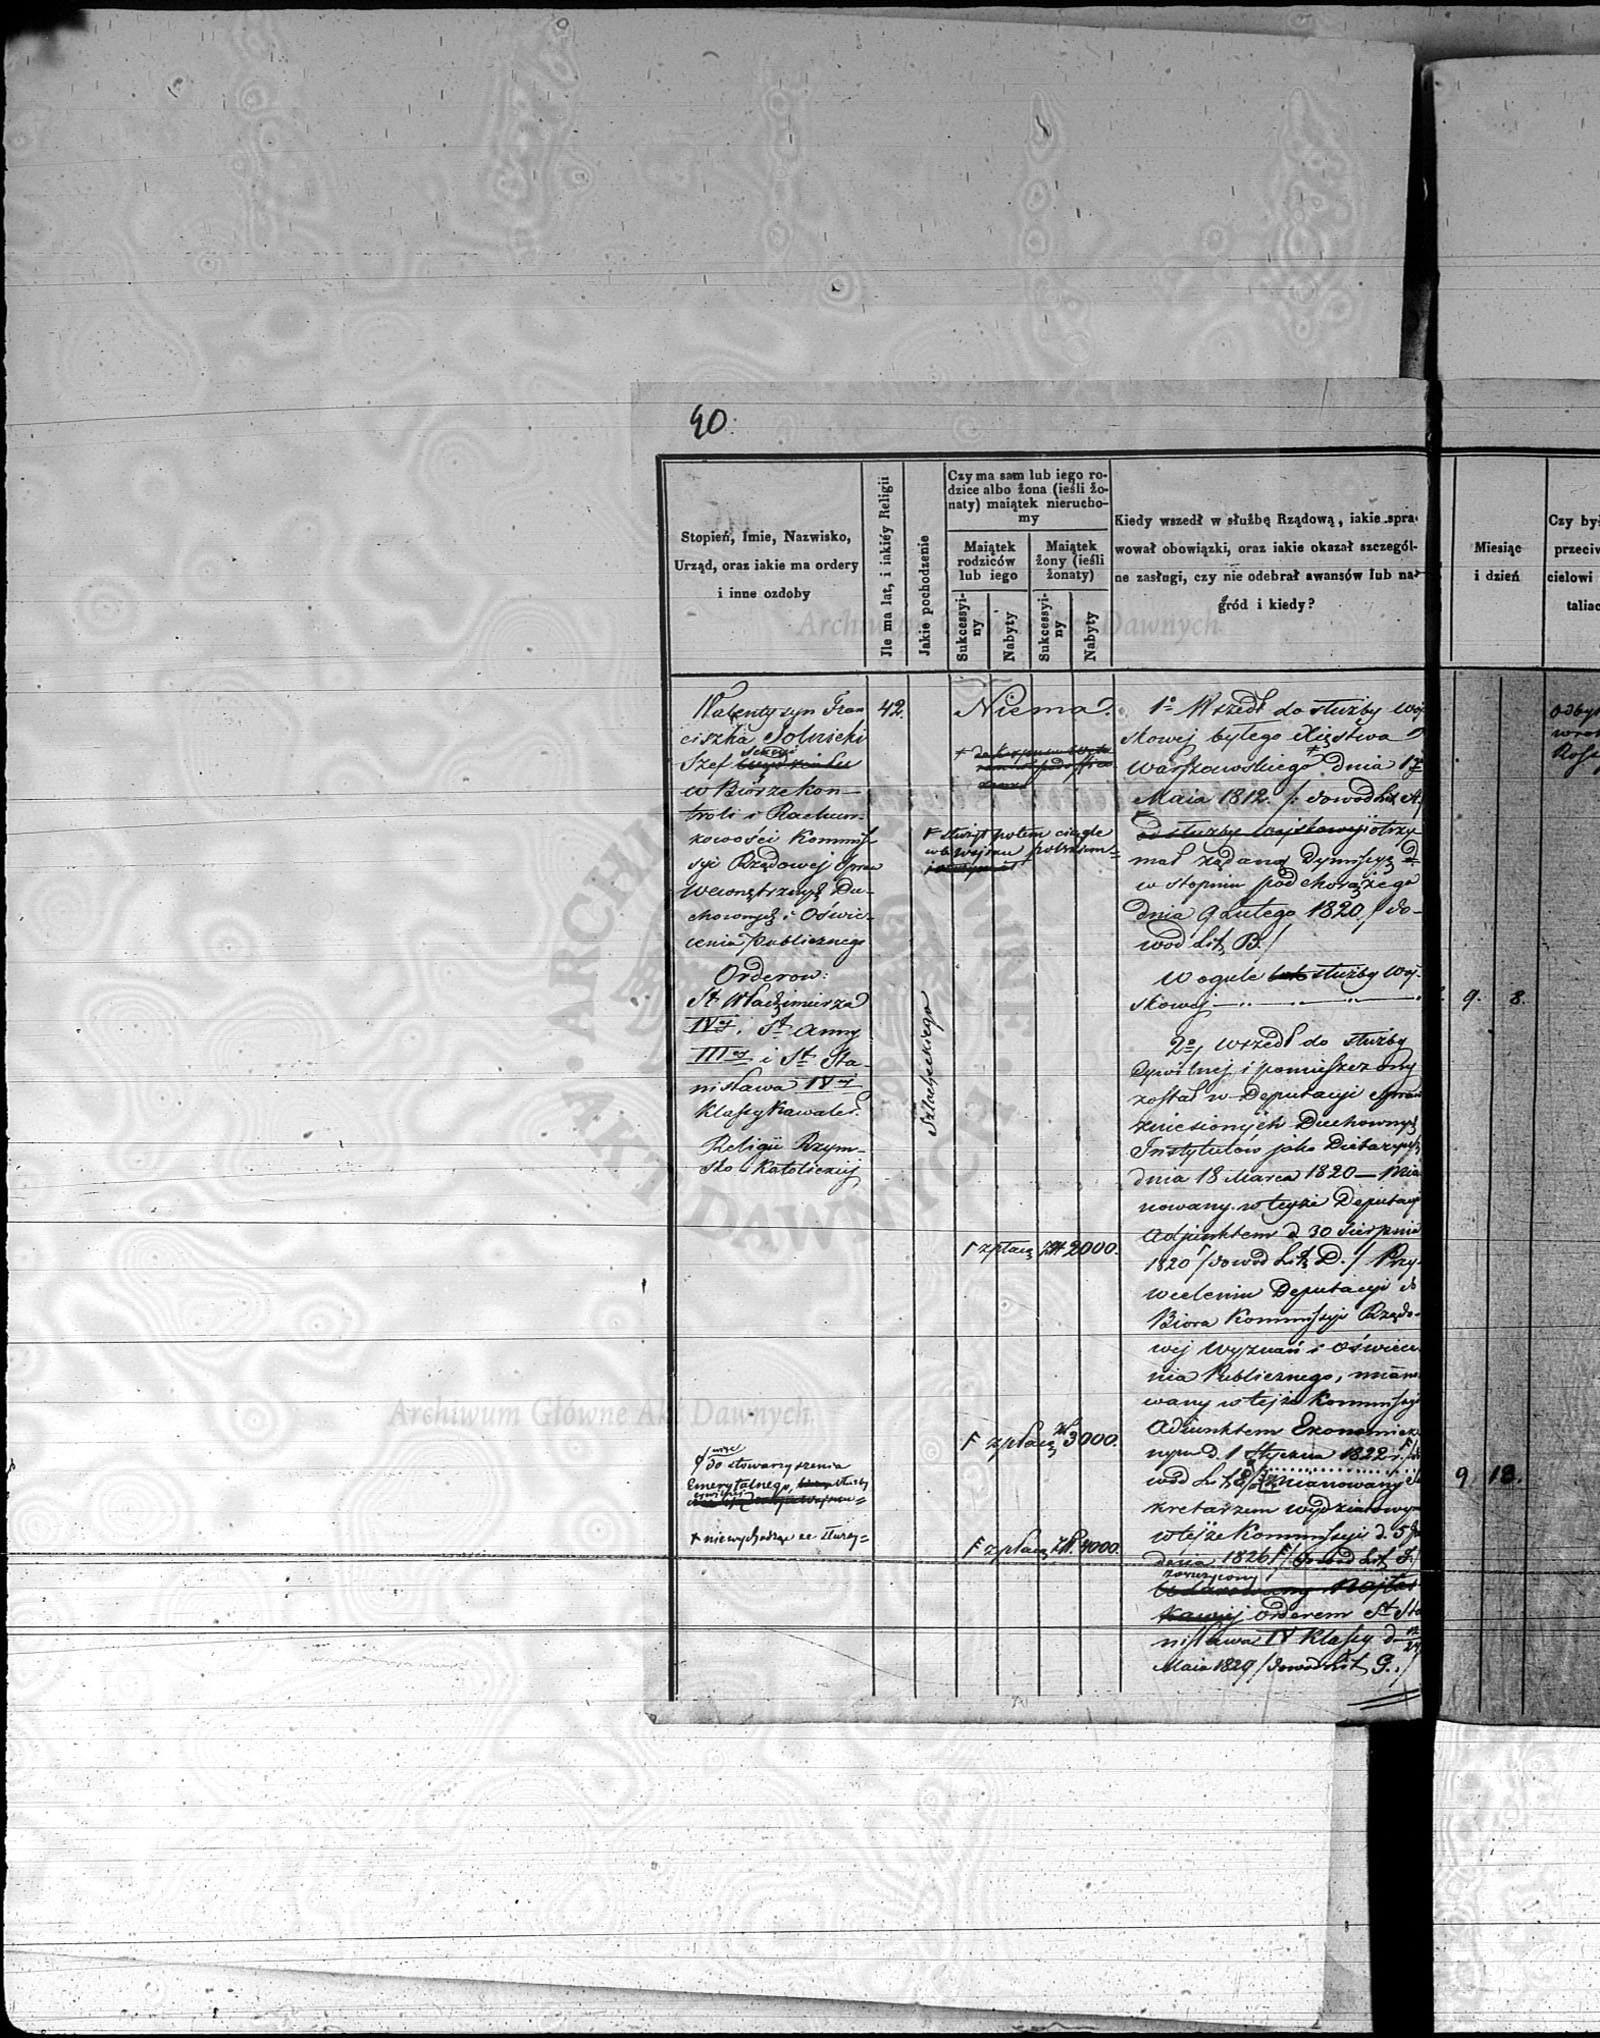 40.
Stopień, Imie, Nazwisko,
Urząd, oraz iakie ma ordery
i inne ozdoby
Ile ma lat, i iakiéy Religii
Jakie pochodzenie
Czy ma sam lub iego ro-
dzice albo żona (ieśli żo-
naty) maiątek nierucho-
my
Maiątek
rodziców
lub iego
Maiątek
żony (ieśli
żonaty)
Sukcessyi-
ny
Nabyty
Sukcessyi-
ny
Nabyty
Kiedy wszedł w służbę Rządową, iakie spra-
wował obowiązki, oraz iakie okazał szczegól-
ne zasługi, czy nie odebrał awansów lub na-
gród i kiedy?
Miesiąc
i dzień
Czy by
przeciw
cielowi
taliac
Walenty syn Fran
ciszka Solnicki
Szef
w Biórze Kon-
troli i Rachun-
kowości Kommis-
syi Rządowej Spraw
Wewnętrznych Du-
chownych i Oświe-
cenia Publicznego
Orderow:
St. Włodzimierza
IVej, St. Anny
IIIej i St. Sta-
nisława IVej
Klassy Kawaler.
Religii Rzym-
sko-Katolickiej
do stowarzyszenia
Emerytalnego, służby
niewychodząc ze służby
42.
Szlacheckiego
Niema.
służył potem ciągle
w wojsku polskiem
z płacą złt 2000.
z płacą zł 3000.
z płacą złt. 4000.
1o Wszedł do służby woj
skowej byłego Xięstwa
Warszawskiego dnia 17
Maia 1812. /: dowod Lit A.
od służby wojskowej otrzy
mał żądaną Dymissyą
w stopniu podchorążego
dnia 9 Lutego 1820 / do-
wod Lit. B./
W ogule służby woj-
skowej
2o, wszedł do służby
Cywilnej i pomieszczony
został w Deputacyi Spraw
zniesionych Duchownych
Instytutów jako Dietaryusz
dnia 18 Marca 1820 — Mia
nowany w tejże Deputacyi
Adjunktem d 30 Sierpnia
1820 / dowod Lit. D./ Przy
wcieleniu Deputacyi do
Biora Kommissyi Rządo-
wej Wyznań i Oświece
nia Publicznego, miano
wany w tejże Kommissyi
Adiunktem Ekonomicz
nym d. 1 Stycznia 1822 r.
wod Lit. E./ mianowany Se
kretarzem wydziałowym
w tejże Kommissyi d. 5
dnia 1826 / dowod Lit. F./
zaszczycony
Orderem St. Sta
nisława IV Klassy d. 12/24
Maia 1829 / dowod Lit. G./
9. 8.
9 18.
odby
Archiwum Główne Akt Dawnych
Archiwum Główne Akt Dawnych
ARCHIWUM GŁÓWNE AKT DAWNYCH